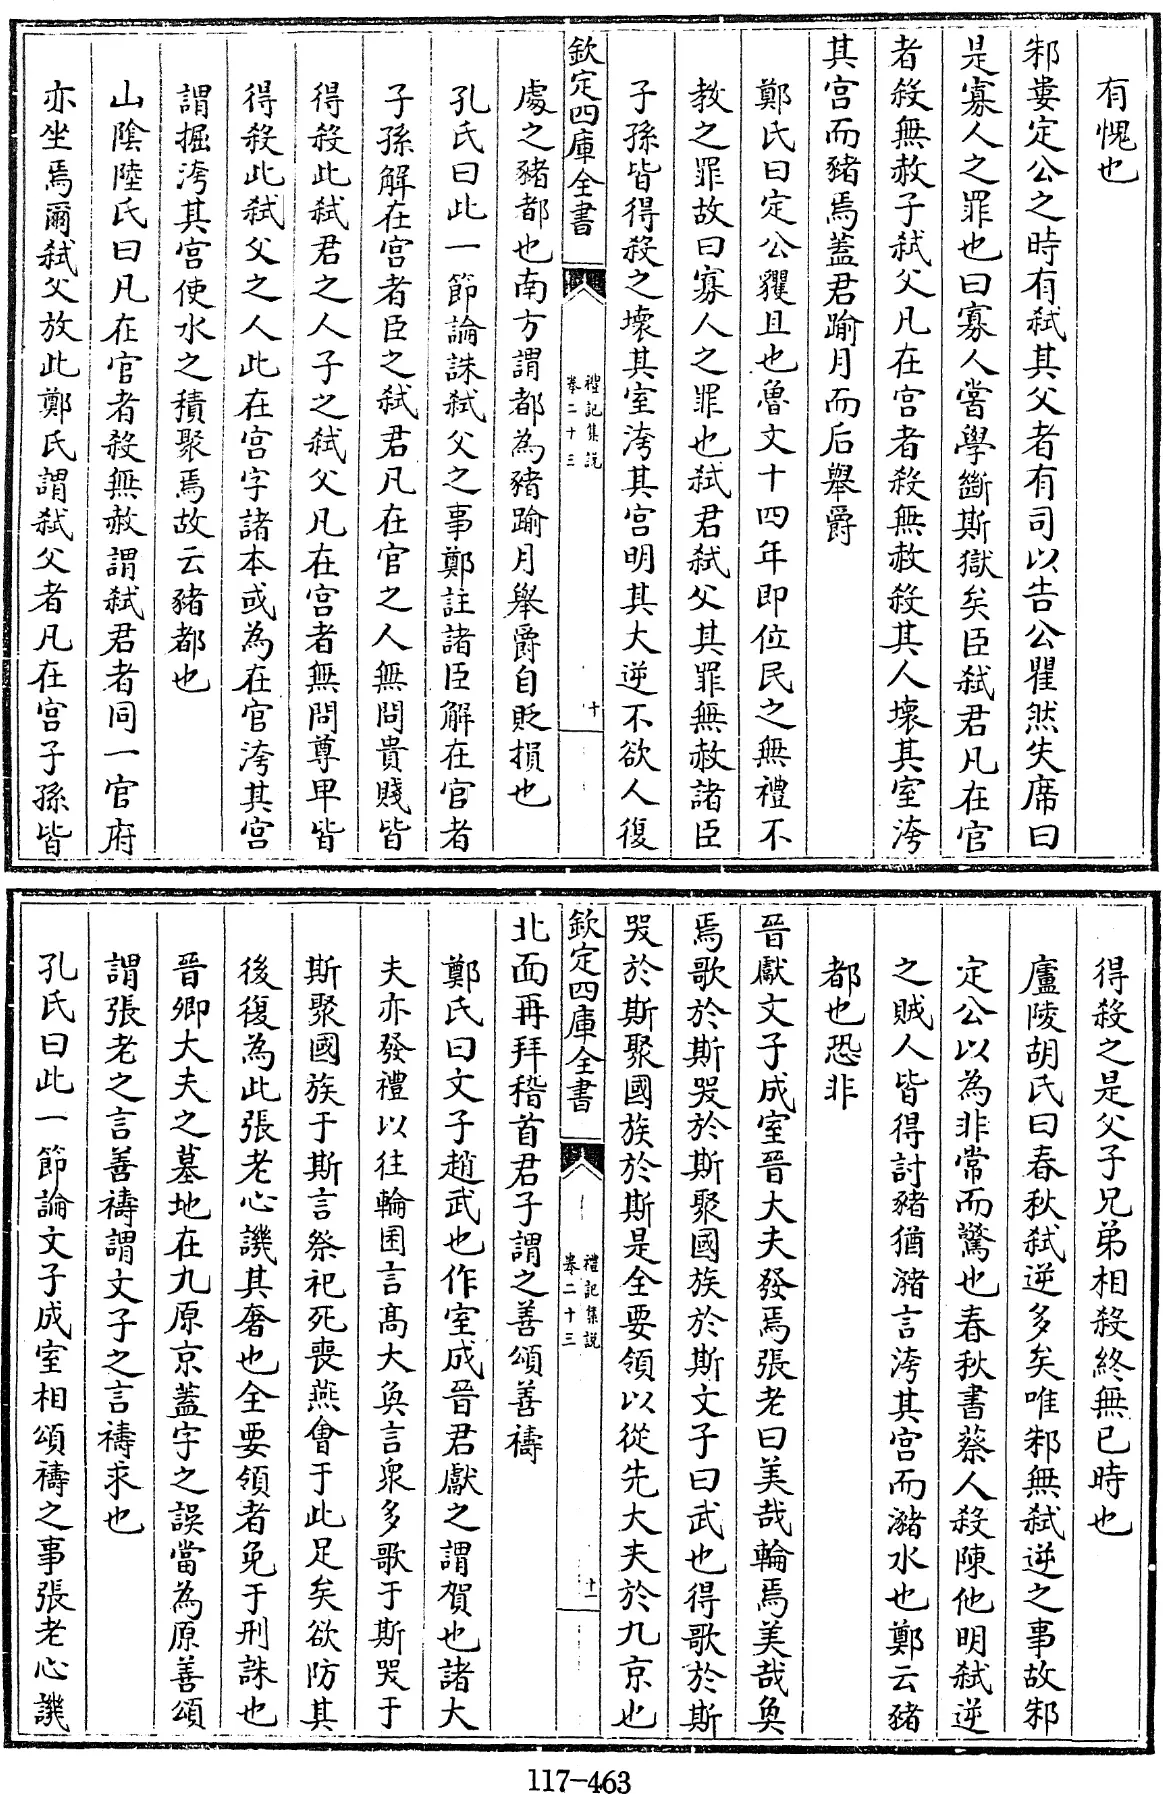 有愧也
邾婁定公之時有弑其父者有司以告公瞿然失席曰
是寡人之罪也曰寡人嘗學斷斯獄矣臣弑君凡在官
者殺無赦子弑父凡在宮者殺無赦殺其人壞其室洿
其宮而豬焉蓋君踰月而后舉爵
鄭氏曰定公貜且也魯文十四年即位民之無禮不
教之罪故曰寡人之罪也弑君弑父其罪無赦諸臣
子孫皆得殺之壞其室洿其宮明其大逆不欲人復
欽定四庫全書
禮記集説
卷二十三
十
處之豬都也南方謂都為豬踰月舉爵自貶損也
孔氏曰此一節論誅弑父之事鄭註諸臣解在官者
子孫解在宮者臣之弑君凡在官之人無問貴賤皆
得殺此弑君之人子之弑父凡在宮者無問尊卑皆
得殺此弑父之人此在宮字諸本或為在官洿其宮
謂掘洿其宮使水之積聚焉故云豬都也
山陰陸氏曰凡在官者殺無赦謂弑君者同一官府
亦坐焉爾弑父放此鄭氏謂弑父者凡在宮子孫皆
得殺之是父子兄弟相殺終無已時也
廬陵胡氏曰春秋弑逆多矣唯邾無弑逆之事故邾
定公以為非常而驚也春秋書蔡人殺陳他明弑逆
之賊人皆得討豬猶瀦言洿其宮而瀦水也鄭云豬
都也恐非
晉獻文子成室晉大夫發焉張老曰美哉輪焉美哉奐
焉歌於斯哭於斯聚國族於斯文子曰武也得歌於斯
哭於斯聚國族於斯是全要領以從先大夫於九京也
欽定四庫全書
禮記集説
卷二十三
十一
北面再拜稽首君子謂之善頌善禱
鄭氏曰文子趙武也作室成晉君獻之謂賀也諸大
夫亦發禮以往輪囷言髙大奐言衆多歌于斯哭于
斯聚國族于斯言祭祀死喪燕會于此足矣欲防其
後復為此張老心譏其奢也全要領者免于刑誅也
晉卿大夫之墓地在九原京蓋字之誤當為原善頌
謂張老之言善禱謂文子之言禱求也
孔氏曰此一節論文子成室相頌禱之事張老心譏
117-463